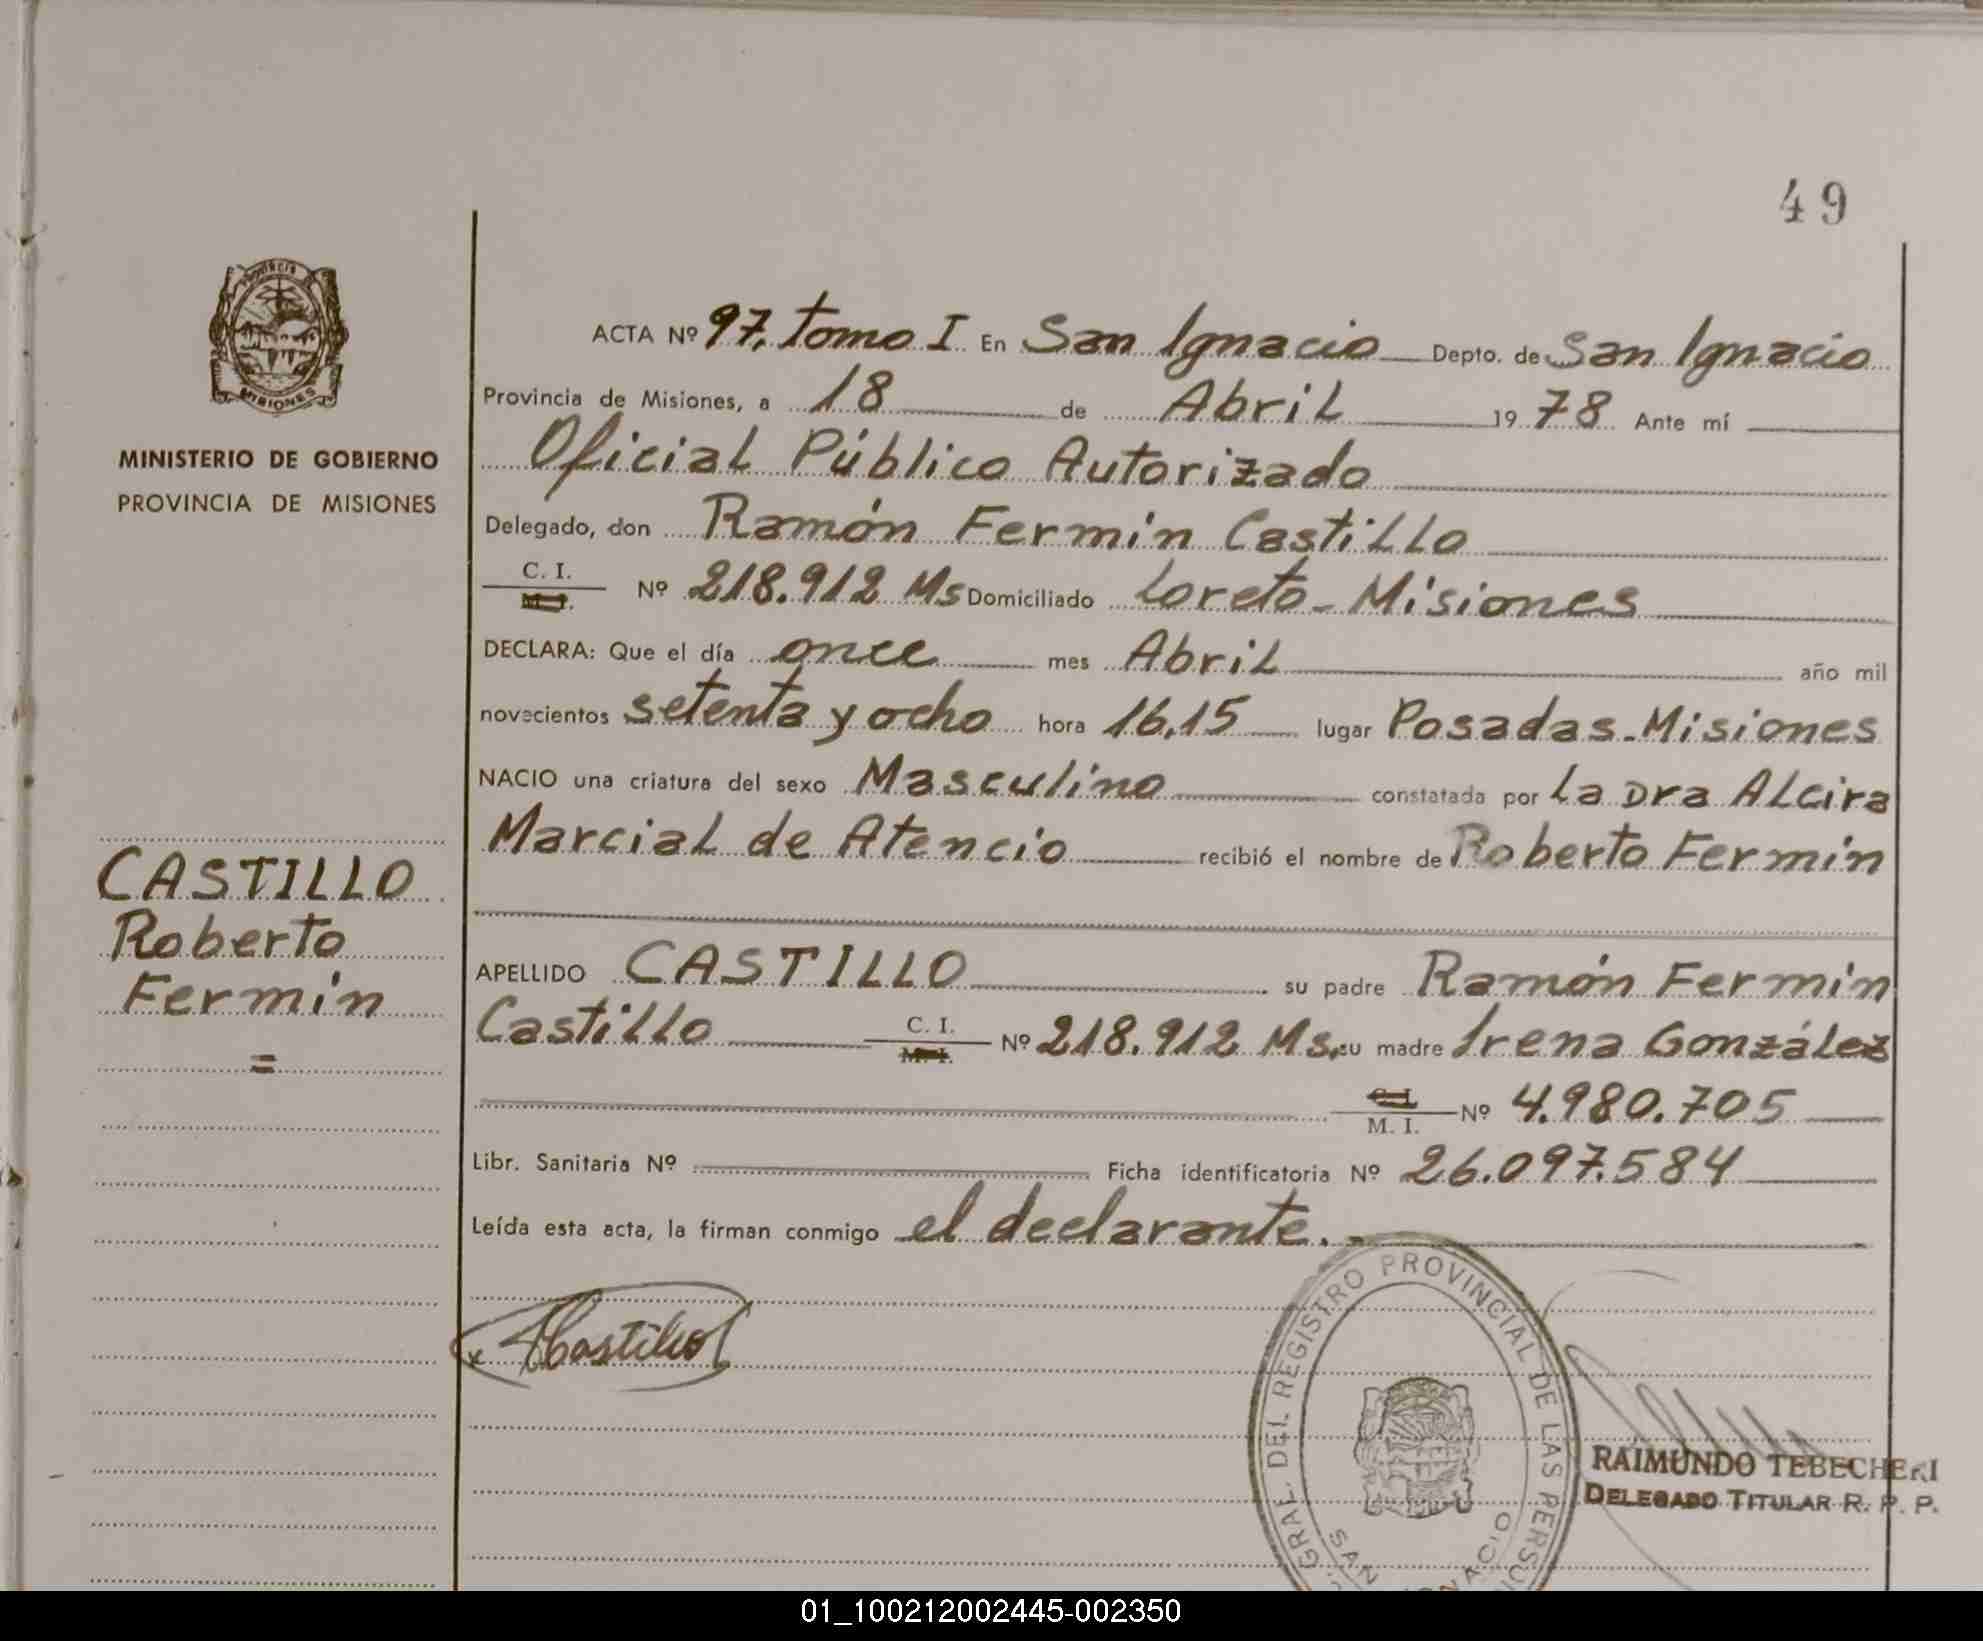 49
PROVINCIA DE
MISIONES
MINISTERIO DE GOBIERNO
PROVINCIA DE MISIONES
CASTILLO
Roberto
Fermín
=
ACTA Nº 97, tomo I En San Ignacio Depto. de San Ignacio
Provincia de Misiones, a 18 de Abril 19 78 Ante mí
Oficial Público Autorizado
Delegado, don Ramón Fermín Castillo
C. I.
M. I. Nº 218.912 Ms Domiciliado Loreto - Misiones
DECLARA: Que el día once mes Abril año mil
novecientos setenta y ocho hora 16,15 lugar Posadas - Misiones
NACIO una criatura del sexo Masculino constatada por La Dra Alcira
Marcial de Atencio recibió el nombre de Roberto Fermín
APELLIDO CASTILLO su padre Ramón Fermín
Castillo C. I. M. I. Nº 218.912 Ms. su madre Irena González
C. I. M. I. Nº 4.980.705
Libr. Sanitaria Nº Ficha identificatoria Nº 26.097.584
Leída esta acta, la firman conmigo el declarante. -
Castillo
GRAL. DEL REGISTRO PROVINCIAL DE LAS PERSON
SAN IGNACIO
RAIMUNDO TEBECHERI
DELEGADO TITULAR R. P. P.
01_100212002445-002350